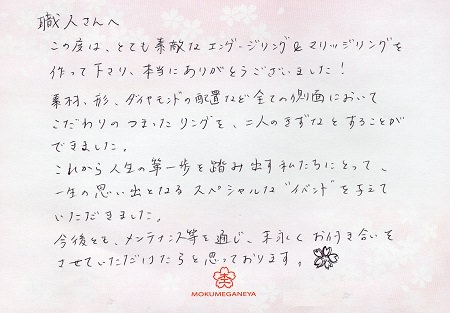 職人さんへ
この度は、とても素敵なエンゲージリング&マリッジリングを
作って下さり、本当にありがとうございました！
素材、形、ダイヤモンドの配置など全ての側面において
こだわりのつまったリングを、二人のきずなとすることが
できました。
これから人生の第一歩を踏み出す私たちにとって、
一生の思い出となるスペシャルな"イベント"を与えて
いただきました。
今後とも、メンテナンス等を通じ、末永くお付き合いを
させていただけたらと思っております。
MOKUMEGANEYA